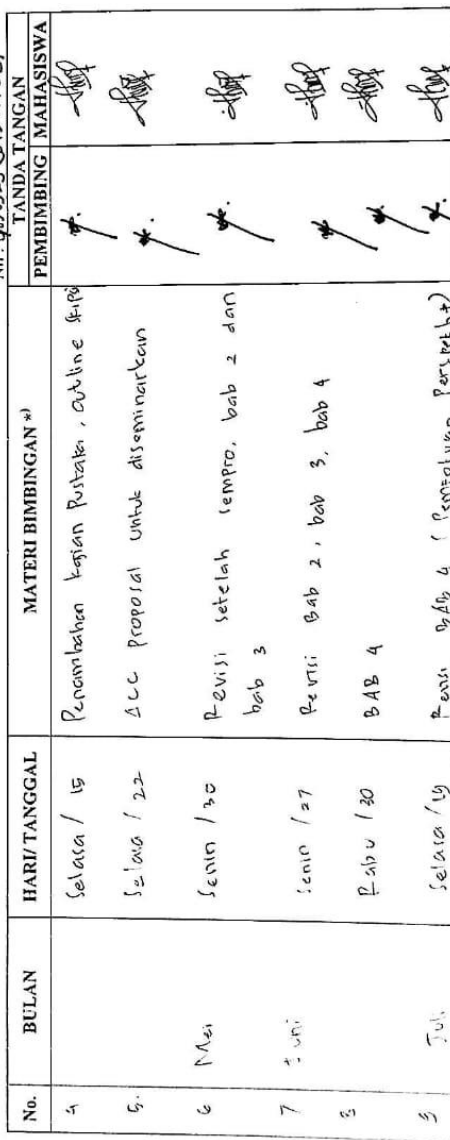 TANDA TANGAN
No. BULAN HARI/TANGGAL MATERI BIMBINGAN *) PEMBIMBING MAHASISWA
4 Selasa / 15 Penambahan kajian Pustaka, outline skripsi
5. Selasa / 22 ACC proposal untuk diseminarkan
6 Mei Senin / 30 Revisi setelah sempro, bab 2 dan
bab 3
7 Juni Senin / 27 Revisi Bab 2, bab 3, bab 4
8 Rabu / 30 BAB 4
9 Juli Selasa / 19 Revisi BAB 4 (